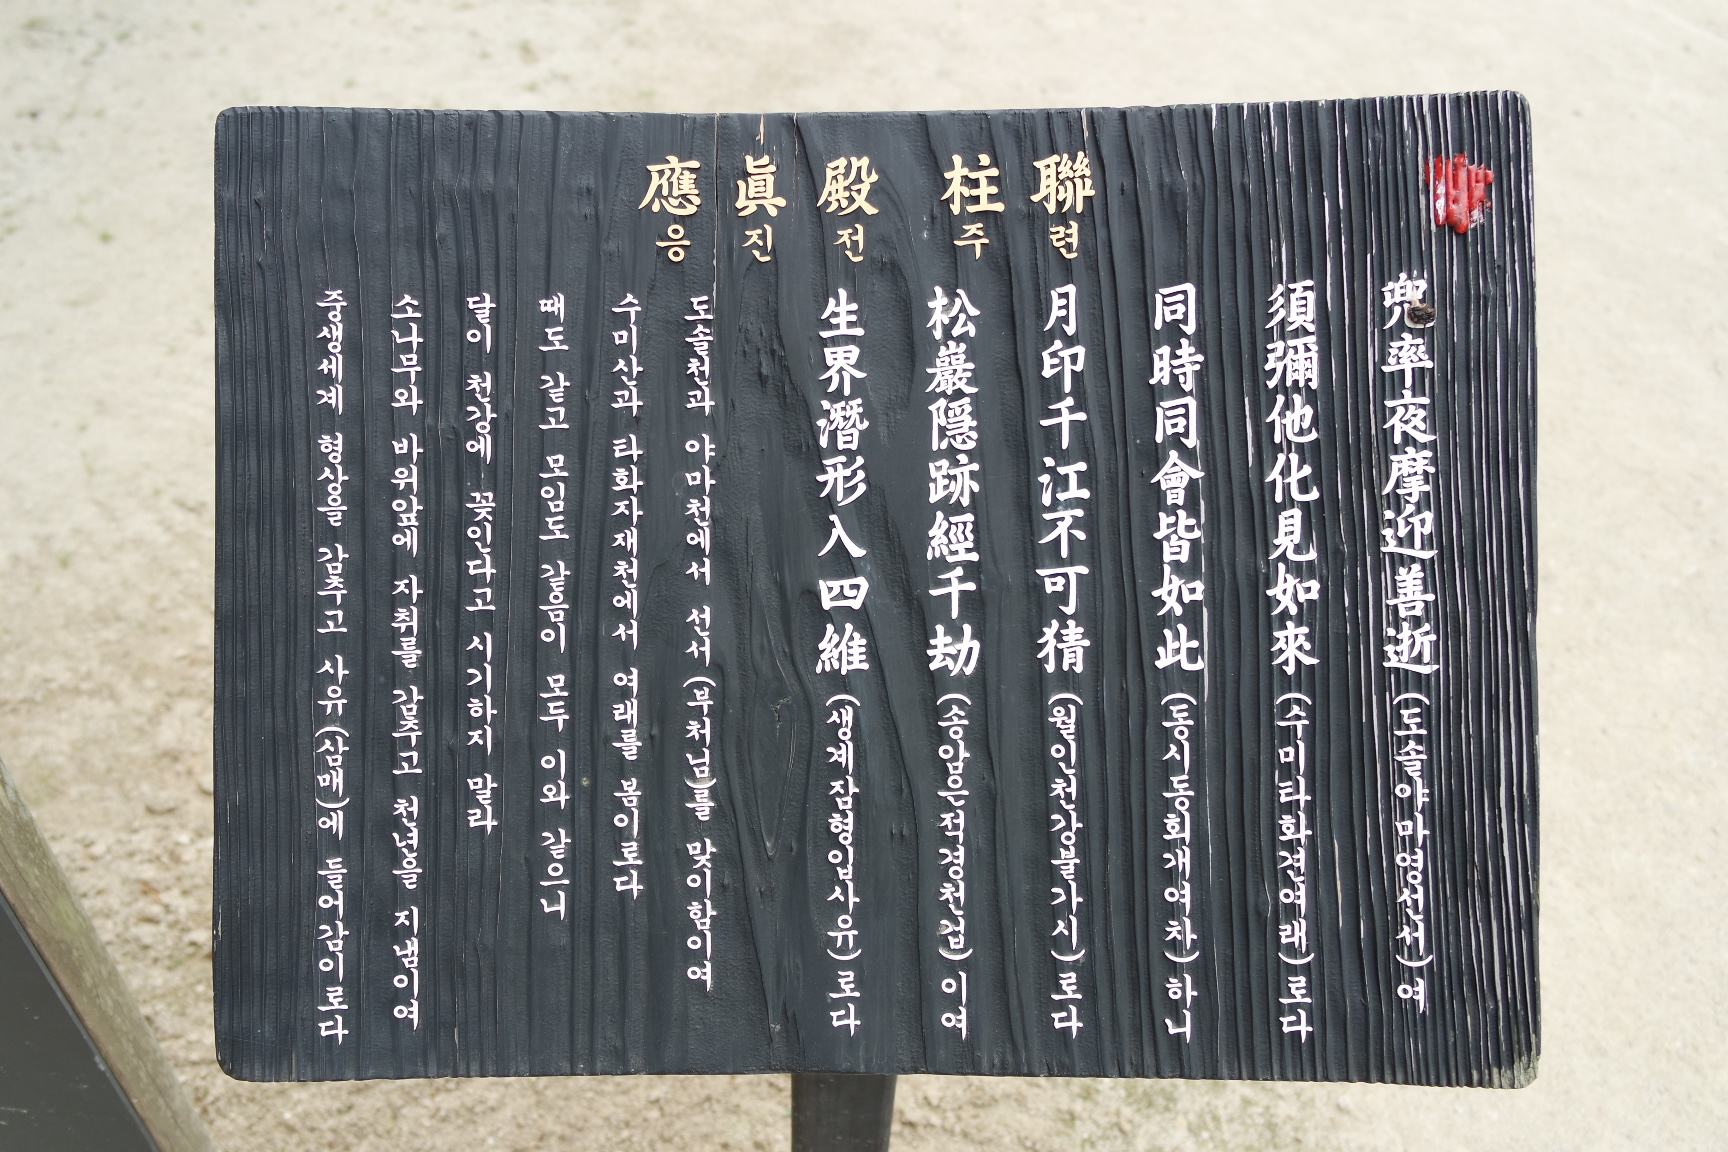 應眞殿 柱聯
응진전 주련
兜率夜摩迎善逝(도솔야마영선서)여
須彌他化見如來(수미타화견여래)로다
同時同會皆如此(동시동회개여차)하니
月印千江不可猜(월인천강불가시)로다
松巖隱跡經千劫(송암은적경천겁)이여
生界潛形入四維(생계잠형입사유)로다
도솔천과 야마천에서 선서(부처님)를 맞이함이여
수미산과 타화자재천에서 여래를 봄이로다
때도 같고 모임도 같음이 모두 이와 같으니
달이 천강에 꽃인다고 시기하지 말라
소나무와 바위앞에 자취를 감추고 천년을 지냄이여
중생세계 형상을 감추고 사유(삼매)에 들어감이로다